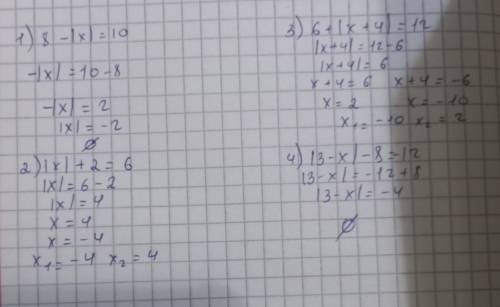 1) 8 -|x| = 10
-|x| = 10 - 8
-|x| = 2
|x| = -2
∅
2) |x| + 2 = 6
|x| = 6 - 2
|x| = 4
x = 4
x = -4
x₁ = -4 x₂ = 4
3) 6 + |x + 4| = 12
|x+4| = 12 - 6
|x+4| = 6
x + 4 = 6 x + 4 = -6
x = 2 x = -10
x₁ = -10 x₂ = 2
4) |3 - x| - 8 = 12
|3 - x| = -12 + 8
|3 - x| = -4
∅